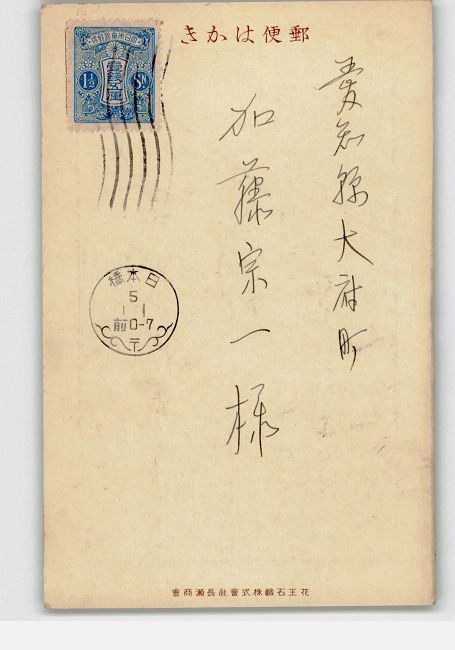 郵便はかき
大日本帝國郵便
1½ Sn
壹錢五厘
愛知縣大府町
加藤宗一様
日本橋
5
1 1
前0-7
〒
花王石鹸株式會社長瀬商會